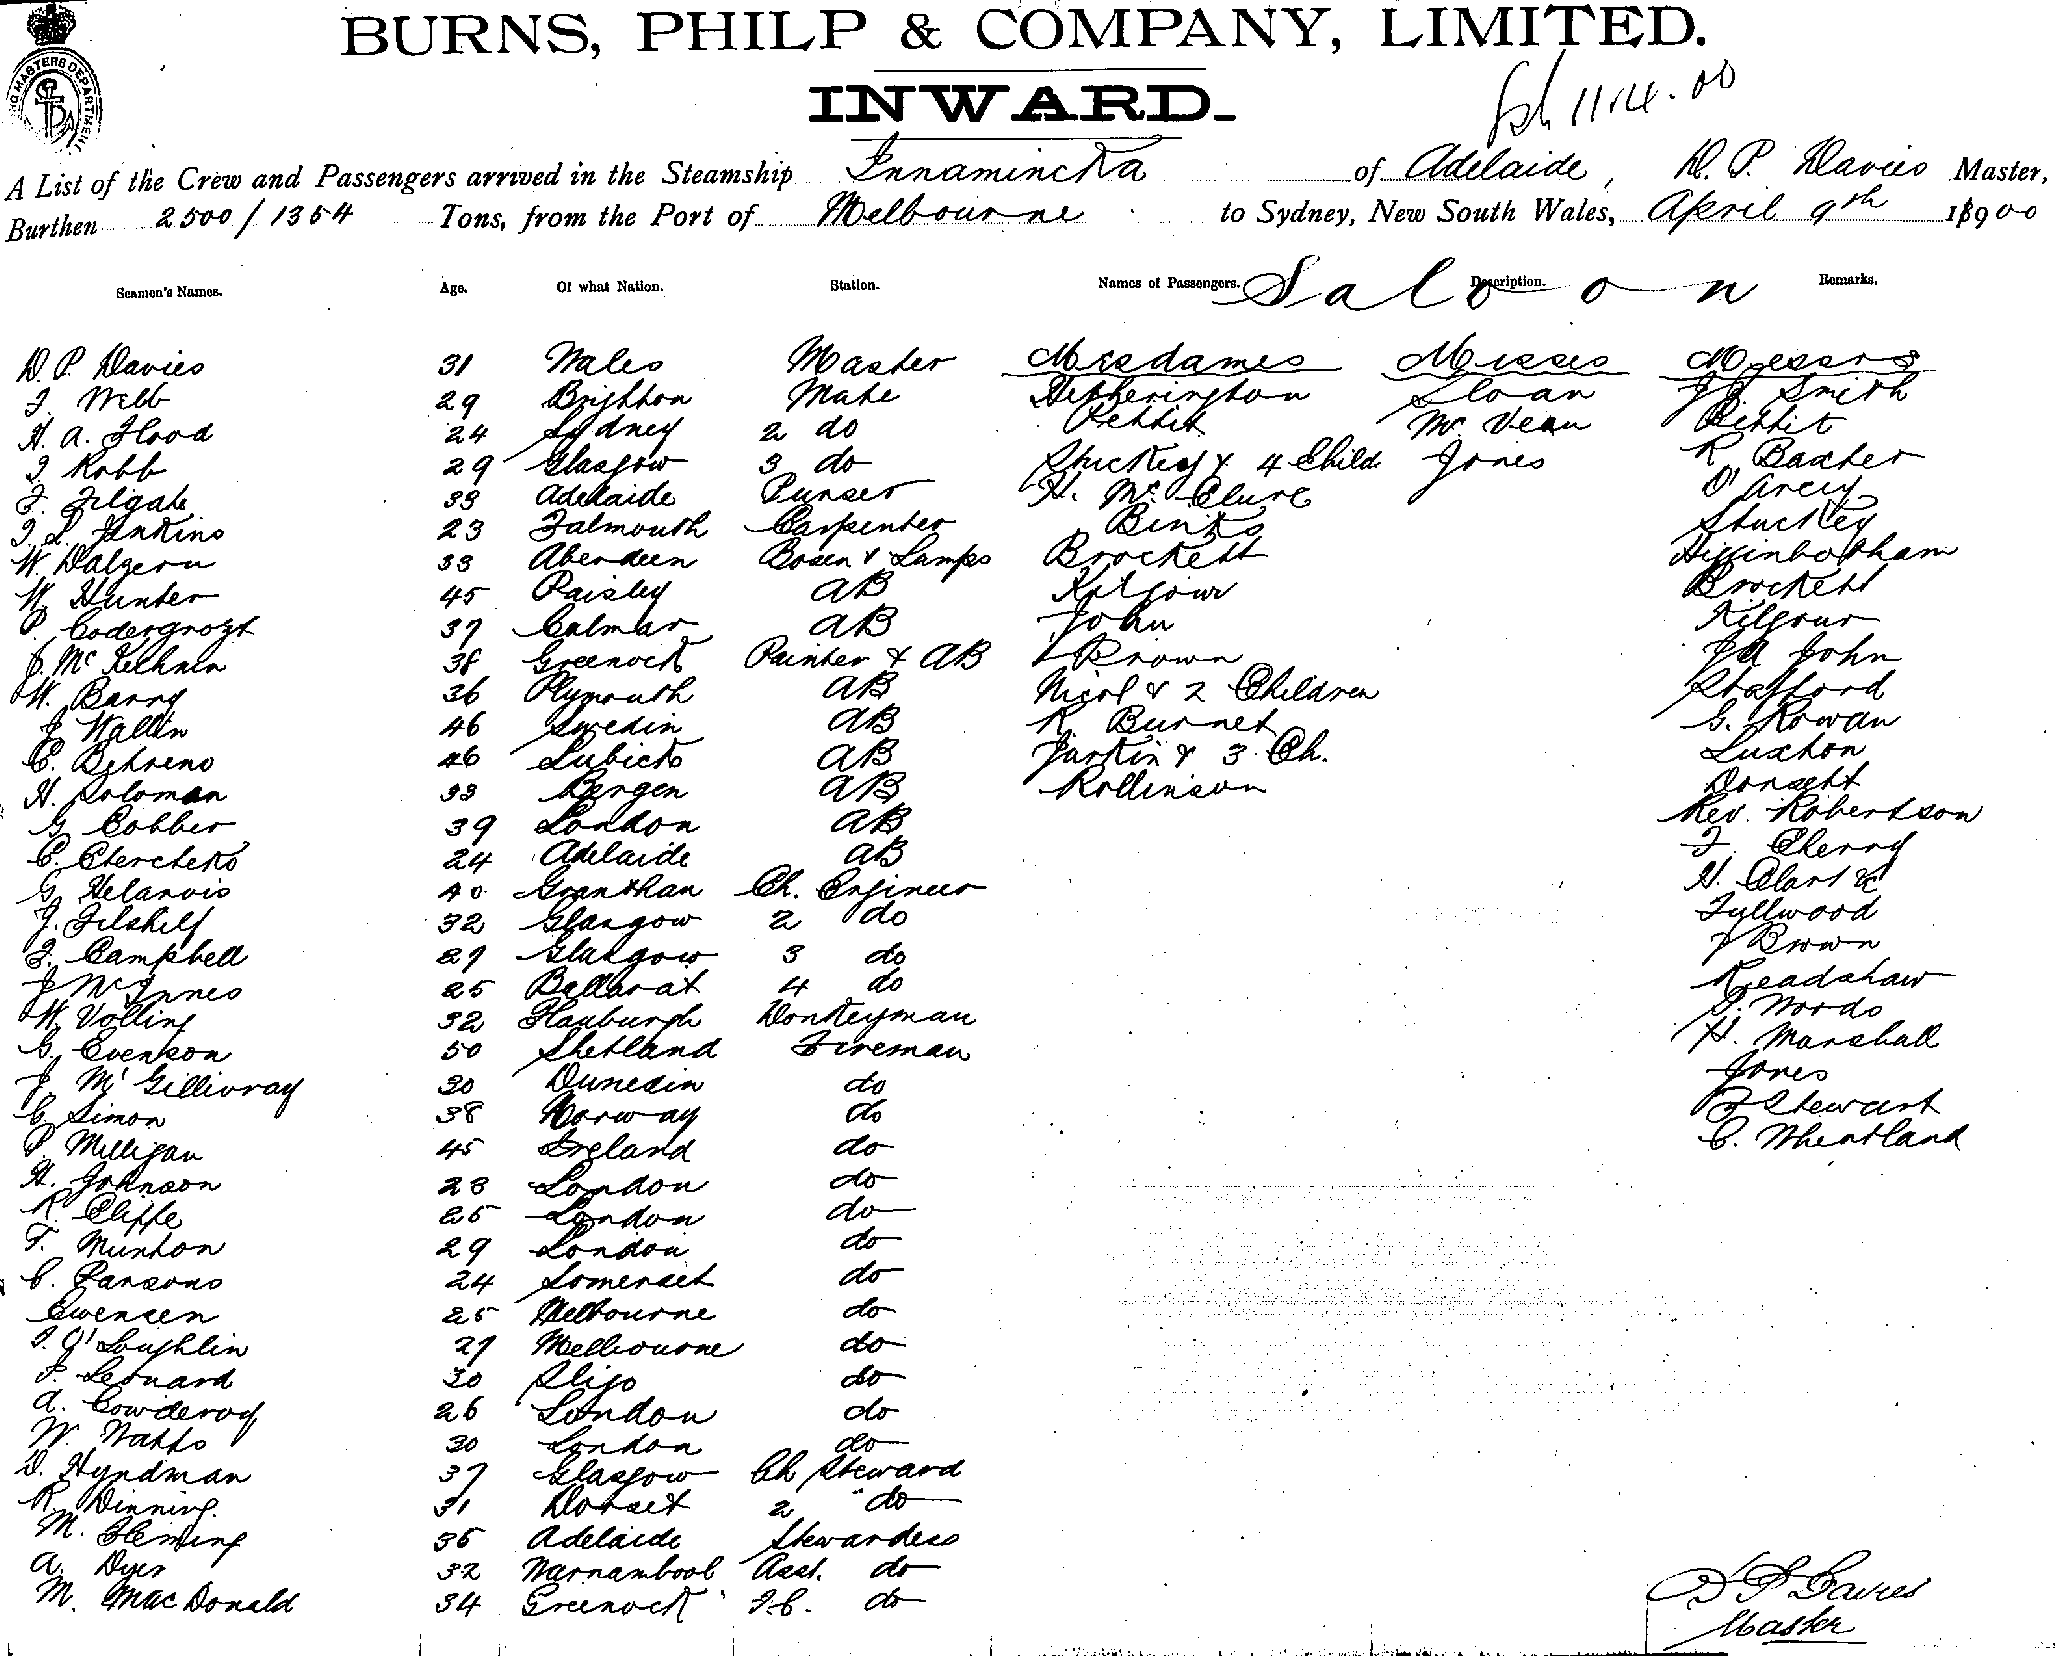 BURNS, PHILP & COMPANY, LIMITED.
INWARD.
11.4.00
A List of the Crew and Passengers arrived in the Steamship Innamincka of Adelaide, D. P. Davies Master,
Burthen 2500/1354 Tons, from the Port of Melbourne to Sydney, New South Wales, April 9th 1900
Seamen's Names. Age. Of what Nation. Station. Names of Passengers. Description. Remarks.
Saloon
D. P. Davies 31 Wales Master Mesdames Misses Messrs
J. Webb 29 Brighton Mate Hetherington Sloan Smith
H. A. Flood 24 Sydney 2 do Pettit McVean Pettit
J Robb 29 Glasgow 3 do Stuckey & 4 Child Jones R Baxter
F. Filgate 33 Adelaide Purser H. McClure D'Arcy
J. S. Jenkins 23 Falmouth Carpenter Binks Stuckey
W. 33 Aberdeen Bosen & Lamps Brockett Higginbotham
W. Hunter 45 Paisley AB Kilgour Brockett
P. 37 Calmar AB John Kilgour
38 Greenock Painter & AB Brown J A John
W. Barry 36 Plymouth AB Nicol & 2 Children Stafford
J Wallin 46 Swedin AB R. Burnet G. Rowan
C. Behrens 46 AB Larkin & 3 Ch. Luxton
H. Soloman 33 Bergen AB Rollinson Dorsett
G Cobber 39 London AB Rev. Robertson
C. 24 Adelaide AB F. Cherry
G. 40 Granthan Ch. Engineer H.
J. Filshilf 32 Glasgow 2 do Fyllwood
J. Campbell 29 Glasgow 3 do Brown
J McInnes 25 Ballarat 4 do Readshaw
W Volling 32 Donkeyman Woods
G. Evenson 50 Shetland Fireman H. Marshall
J. McGillivray 30 Dunedin do Jones
C Simon 38 Norway do F Stewart
P. Milligan 45 Ireland do C. Wheatland
H. Johnson 28 London do
R. Cliffe 25 London do
F. Munton 29 London do
C. Parsons 24 Somerset do
Swensen 25 Melbourne do
J. O'Loughlin 29 Melbourne do
F. Leonard 30 Sligo do
A. Cowderoy 26 London do
W. Watts 30 London do
D. Hyndman 37 Glasgow Ch Steward
R. Dinning. 31 Dorset 2 " do
M. Fleming 35 Adelaide Stewardess
A. Dyer 32 Warnambool Asst. do
M. MacDonald 34 Greenock F.C. do
D P Davies
Master